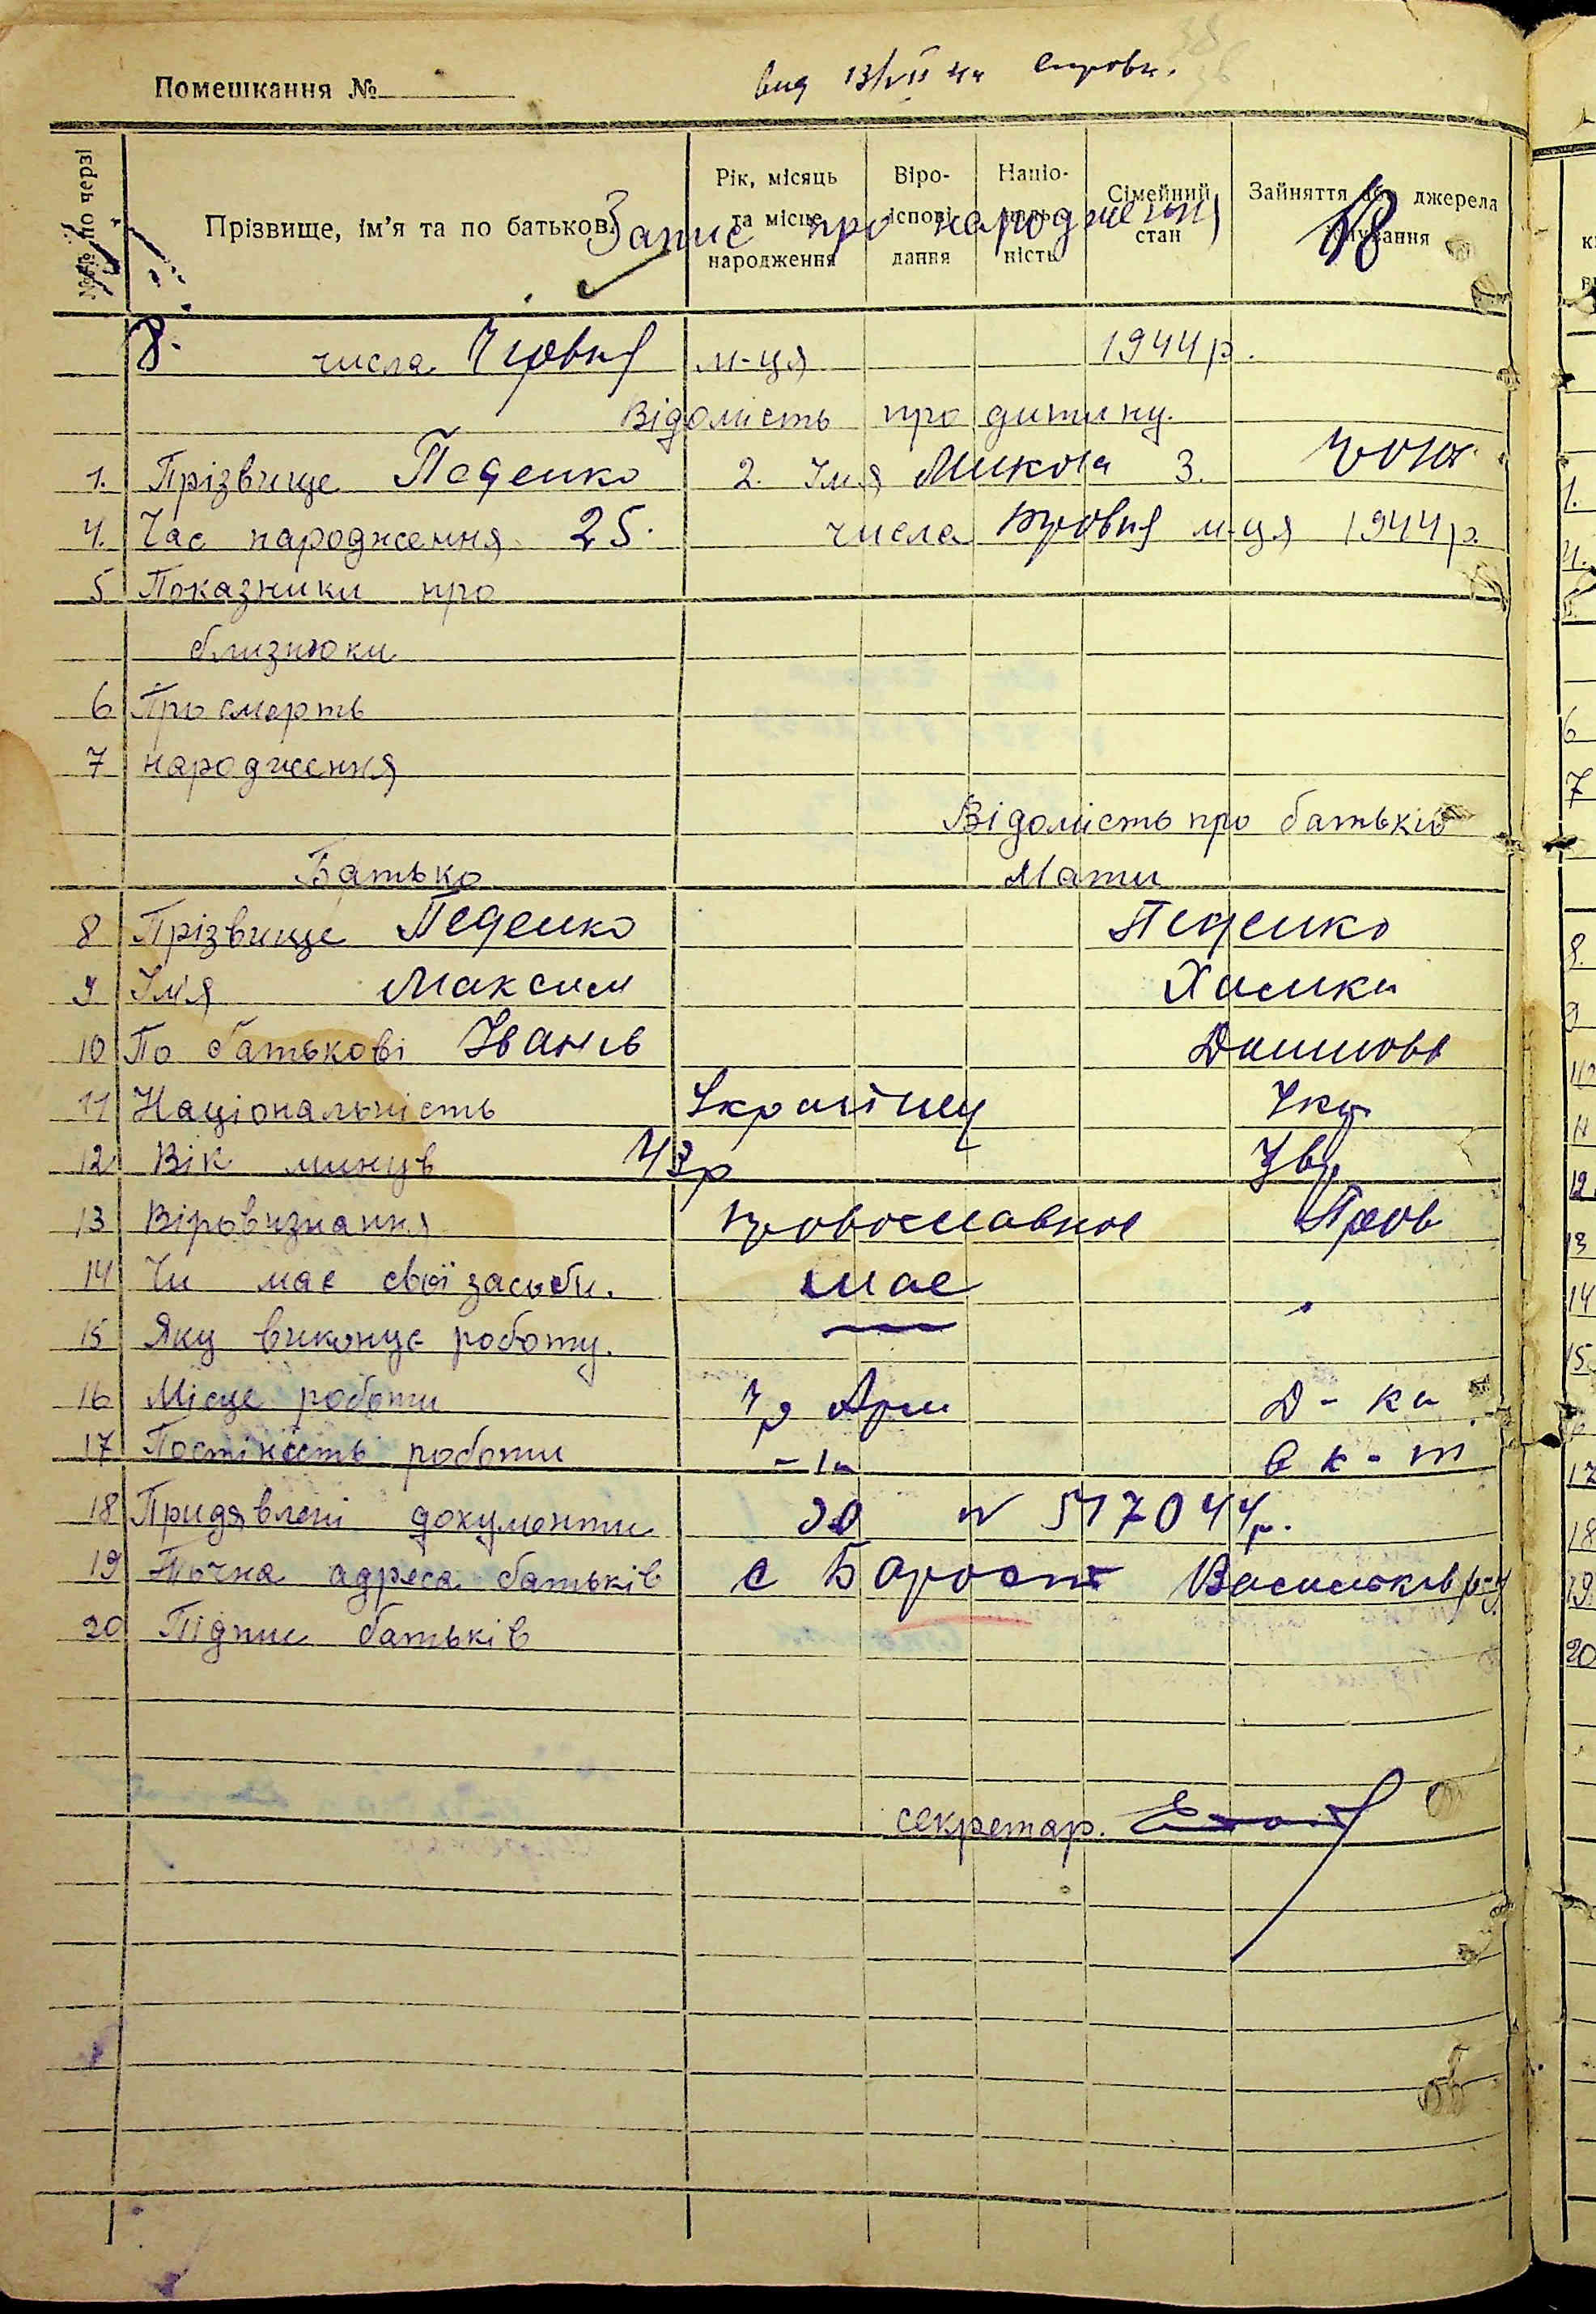 Помешкання №
вид 13/VII 44 справк.
№№ по черзі
Прізвище, ім'я та по батькові
Рік, місяць та місце народження
Віро-іспові-дання
Націо-наль-ність
Сімейний стан
Зайняття або джерела існування
Запис про народження 18
8. числа Червня м-ця 1944 р.
Відомість про дитину.
1. Прізвище Педенко 2. Імя Микола 3. чол.
4. Час народження 25. числа м-ця 1944 р.
5 Показники про
близнюки
6 Про смерть
7 народження
Відомість про батьків
Батько Мати
8 Прізвище Педенко Педенко
9 Імя Максим Химка
10 По батькові Іванів
11 Національність Українец Укр
12 Вік минув 43р
13 Віровизнання православное Прав
14 Чи має свої засоби. мае
15 Яку виконує роботу.
16 Місце роботи Чр Арм Д-ка
17 Постійність роботи
18 Придявлені документи №
19 Точна адреса батьків с Барост Васильків р-н
20 Підпис батьків
секретар.